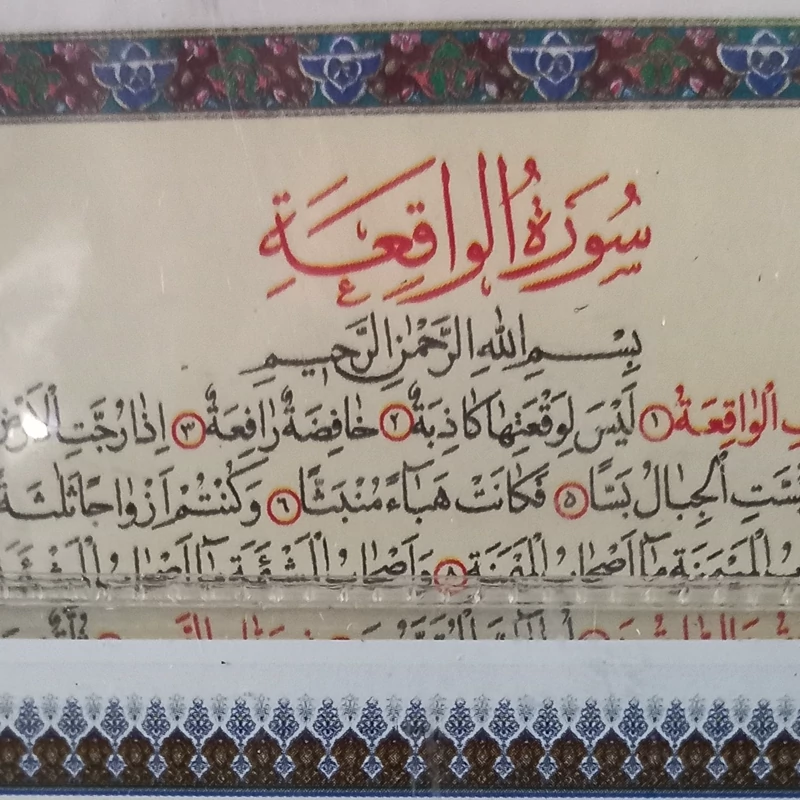 سُورَةُ الْواقِعَةِ
بِسْمِ اللهِ الرَّحْمٰنِ الرَّحيمِ
الْواقِعَةُ ١ لَيْسَ لِوَقْعَتِها كاذِبَةٌ ٢ خافِضَةٌ رافِعَةٌ ٣ اِذا رُجَّتِ الْاَرْضُ
بُسَّتِ الْجِبالُ بَسًّا ٥ فَكانَتْ هَباءً مُنْبَثًّا ٦ وَكُنْتُمْ اَزْواجًا ثَلٰثَةً
الْمَيْمَنَةِ ما اَصْحابُ الْمَيْمَنَةِ ٨ وَاَصْحابُ الْمَشْئَمَةِ ما اَصْحابُ الْمَشْئَمَةِ